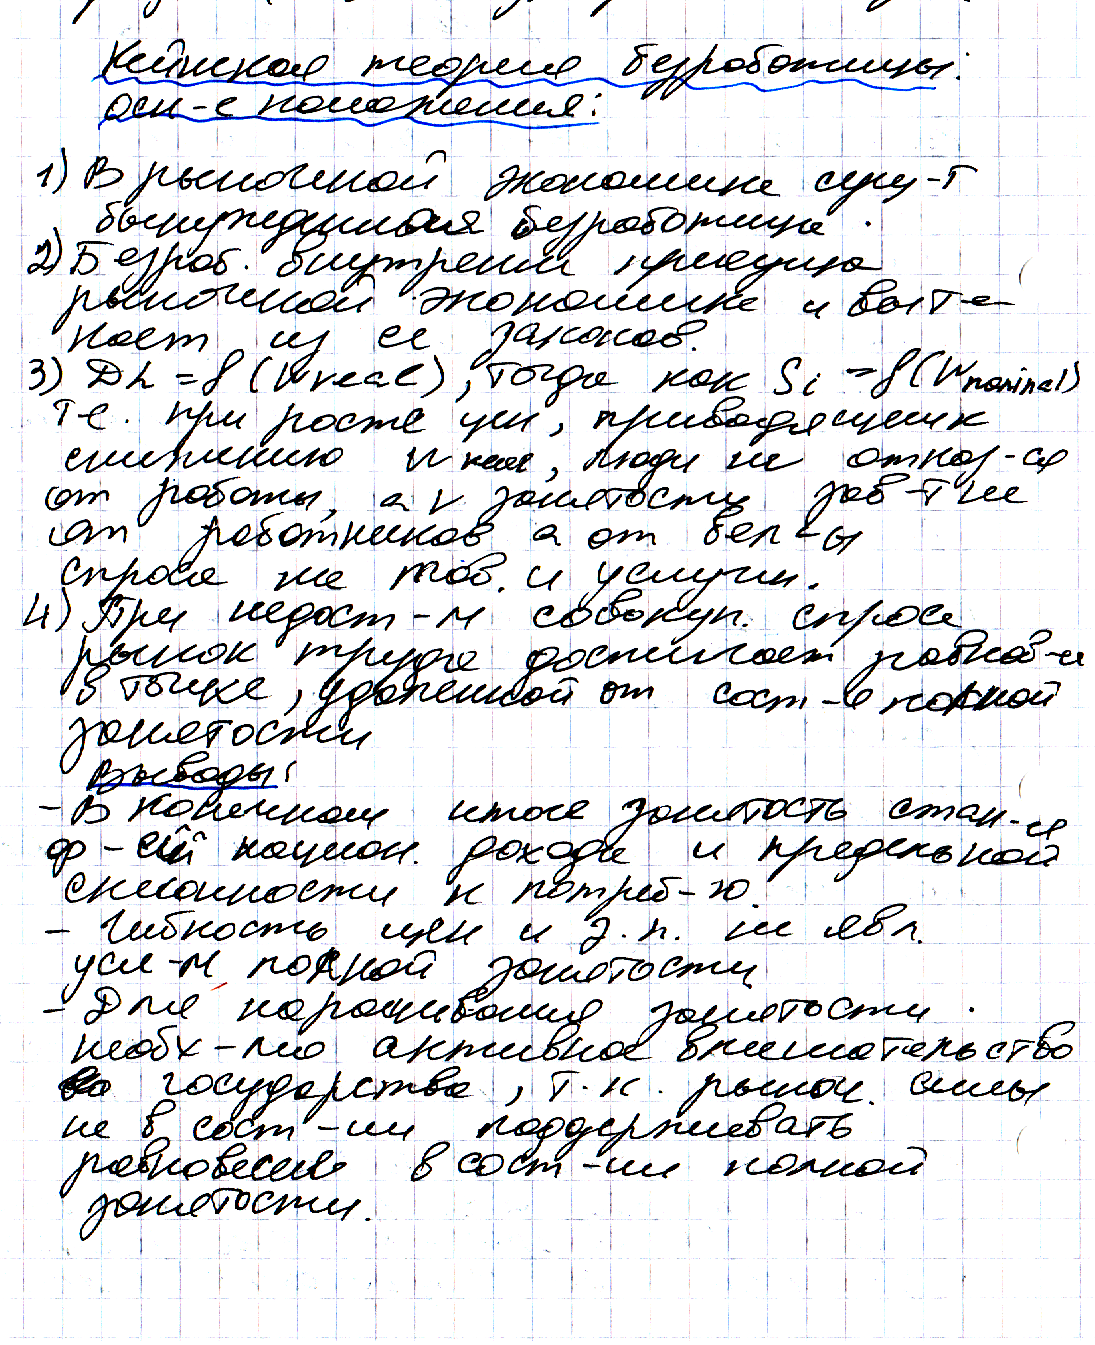 Кейнская теория безработицы:
осн-е положения:
1) В рыночной экономике сущ-т
вынужденная безработица.
2) Безраб. внутренн присуща
рыночной экономике и выте-
кает из ее законов.
3) DL = f (Wreal), тогда как Si = f(Wnominal)
т.е. при росте цен, приводящем к
снижению Wreal, люди не отказ-ся
от работы, а V занятости зав-т не
от работников а от вел-ы
спроса на тов. и услуги.
4) При недост-м совокуп. спросе
рынок труда достигает равнов-я
в точке, удаленной от сост-я полной
занятости
Выводы:
- В конечном итоге занятость стан-ся
ф-ей национ. дохода и предельной
склонности к потреб-ю.
- Гибкость цен и з.п. не явл.
усл-м полной занятости
- Для наращивания занятости
необх-мо активное вмешательство
государства, т.к. рыноч. силы
не в сост-ии поддерживать
равновесие в сост-ии полной
занятости.